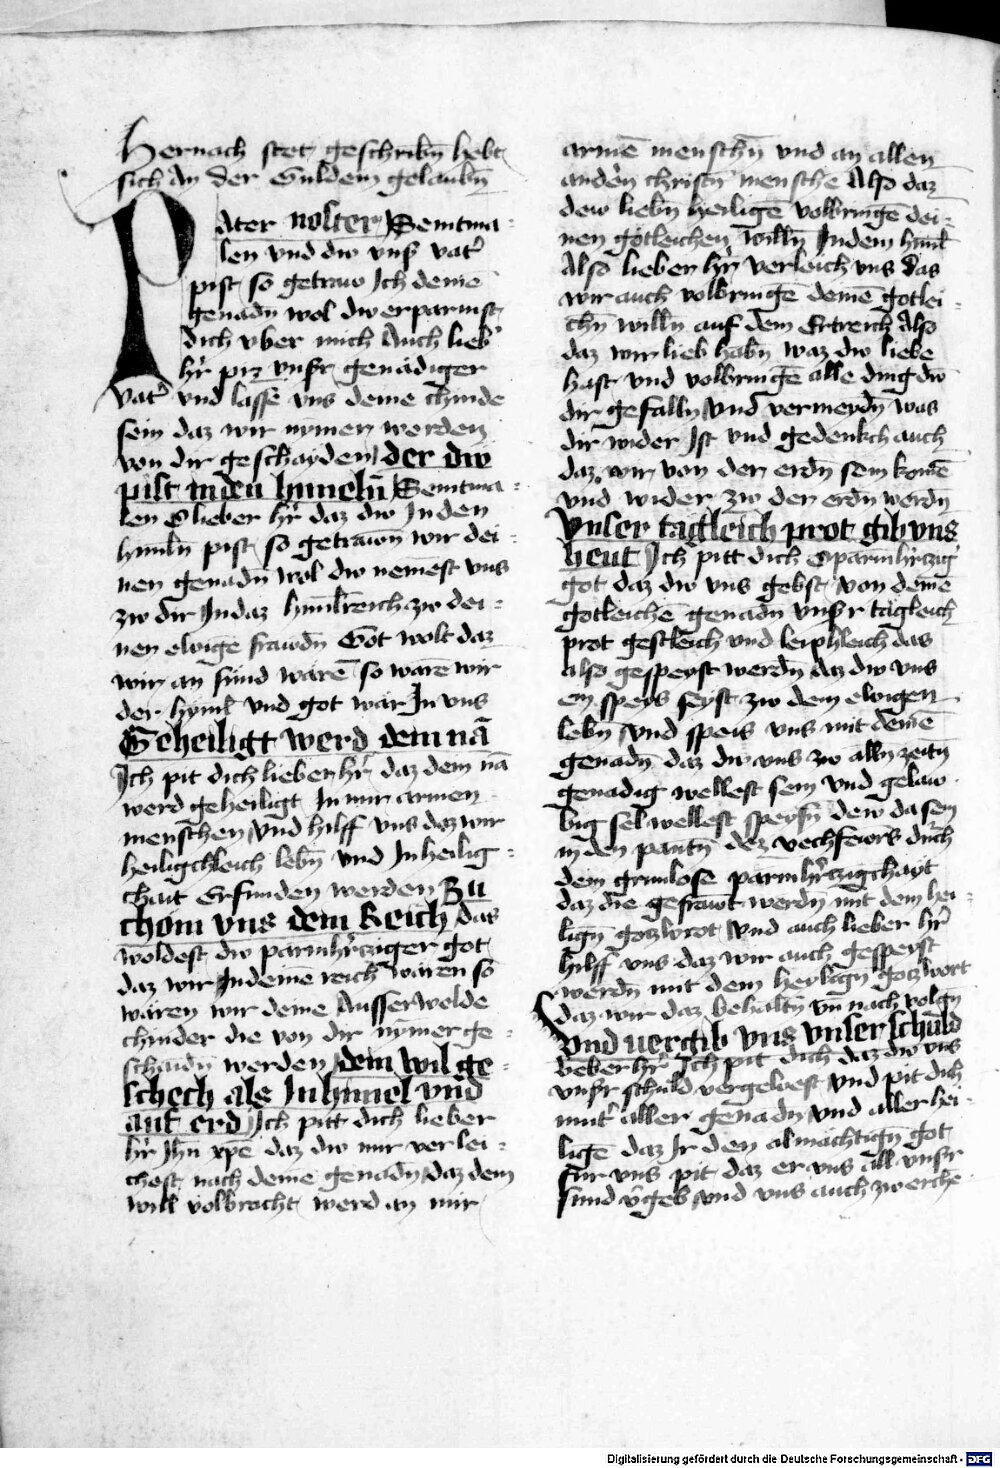 Hernach stet geschribn̄ hebt
sich an der Guldein gelaubn̄
Pater noster Seintma-
len vnd diw vnser vatʼ
pist so getraw Ich deinē
genadn̄ wol diw erparmst
dich vber mich Auch liebʼ
hʼr vnser genädiger
vatʼ vnd lasse vns deine chinde
sein daz wir nymer werden
von dir geschayden der diw
pist in den hymeln̄ Seintma-
len O lieber hʼr daz diw In den
himln̄ pist so getrawn̄ wir dei-
nen genadn̄ wol diw nemest vns
zw dir In daz himlreich zw dei-
nen ewigē frawdn̄ Got wolt daz
wir an sünd warē so ware wir
der hyml vnd got wär In vns
Geheiligt werd dein nā
Ich pit dich lieber hʼr daz dein nā
werd geheiligt In mir armen
menschen vnd hilff vns daz wir
heiligchleich lebn̄ vnd In heilig-
chait Erfunden werden Zu
chom vns dein Reich das
woldest diw parmhʼrcziger got
daz wir In deinē reich wären so
wären wir deine Ausserwelde
chinder die von dir nymer ge-
schaidn̄ werden dein wil ge-
schech als In himel vnd
auf erd Ich pitt dich lieber
hʼr Ihū xpē daz diw mir verlei-
chest nach deinē genadn̄ daz dein
will volbracht werd an mir
armē menschn̄ vnd an allen
andern christn̄ mensche Also daz
dew liebn̄ heiligē volbringē dei-
nen gotleichen willn̄ In dem himl
Also lieber hʼr verleich vns das
wir auch volbringē deinē gotlei-
chn̄ willn̄ auf dem Ertreich Also
daz wir lieb habn̄ waz diw liebe
hast vnd volbringē alle ding diw
dir gefalln̄ vnd vermeydn̄ was
dir wider Ist vnd gedenkch auch
daz wir von der erdn̄ sein komē
vnd wider zw der erdn̄ werdn̄
Vnser tägleich prot gib vns
heut Ich pitt dich O parmhʼrczigʼ
got daz diw vns gebst von deinē
gotleichē genadn̄ vnser tägleich
prot gestleich vnd leiphleich das
also gespeyst werdn̄ daz diw vns
ein speis seyst zw dem ewigen
lebn̄ vnd speis vns mit deinē
genadn̄ daz diw vns zw alln̄ zeitn̄
genadig wellest sein vnd gelaw-
big sel wellest speysn̄ dew da sein
in den pantn̄ dez vechfewrs durch
dein grunlose parmhʼrczigchayt
daz die gefrawt werdn̄ mit dem hei-
lign̄ gotzwrot vnd auch lieber hʼr
hilff vns daz wir auch gespeyst
werdn̄ mit dem heylign̄ gotz wort
daz wir daz behaltn̄ vn̄ nach volgn̄
Vnd uergib vns vnser schuld
lieber hʼr Ich pit dich daz diw vns
vnser schuld vergebest vnd pit dich
mutʼ aller genadn̄ vnd aller hei-
ligē daz Ir den almächtign̄ got
für vns pit daz er vns all vnser
sünd vʼgeb vnd vns auch zw erchē